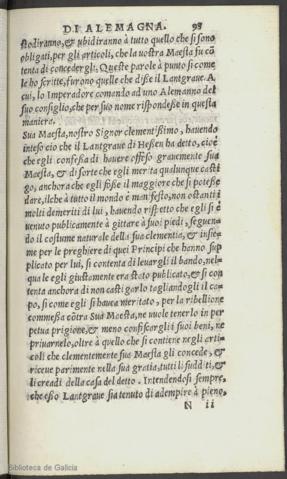 DI ALEMAGNA. 98
stodiranno, & ubidiranno à tutto quello che si sono
obligati, per gli articoli, che la uostra Maesta fu cō
tenta di concedergli. Queste parole à punto si come
le ho scritte, furono quelle che disse il Lantgraue. A
cui, lo Imperadore comando ad uno Alemanno del
suo consiglio, che per suo nome rispondesse in questa
maniera.
Sua Maesta, nostro Signor clementissimo, hauendo
inteso cio che il Lantgraue di Hessen ha detto, cioè
che egli confessa di hauere offeso grauemente sua
Maesta, & di sorte che egli merita qualunque casti
go, anchora che egli fosse il maggiore che si potesse
dare, ilche à tutto il mondo è manifesto, non ostanti i
molti demeriti di lui, hauendo rispetto che egli si è
uenuto publicamente à gittare à suoi piedi, seguen-
do il costume naturale della sua clementia, & insie-
me per le preghiere di quei Principi che hanno sup
plicato per lui, si contenta di leuargli il bando, nel-
qua le egli giustamente era stato publicato, & si con
tenta anchora di non castigarlo tagliandogli il ca-
po, si come egli si hauea meritato, per la ribellione
commessa cōtra Sua Maesta, ne uuole tenerlo in per
petua prigione, & meno confiscargli i suoi beni, ne
priuarnelo, oltre à quello che si contiene negli arti-
coli che clementemente sua Maesta gli concede, &
riceue parimente nella sua gratia, tutti li sudditi, &
li creadi della casa del detto. Intendendosi sempre,
che esso Lantgraue sia tenuto di adempire à pieno,
N ii
Biblioteca de Galicia